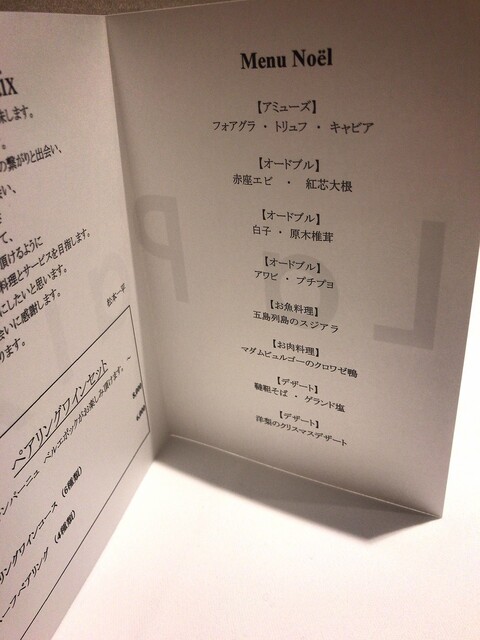 IX
します。
の繋がりと出会い、
て、
頂けるように
料理とサービスを目指します。
にしたいと思います。
会いに感謝します。
ります。
松本一平
ペアリングワインセット
ンパーニュ ベルエポックがお楽しみ頂けます。～
8,000
リングワインコース (6種類)
6,000
ーフペアリング (4種類)
Menu Noël
【アミューズ】
フォアグラ ・ トリュフ ・ キャビア
【オードブル】
赤座エビ ・ 紅芯大根
【オードブル】
白子 ・ 原木椎茸
【オードブル】
アワビ ・ プチプヨ
【お魚料理】
五島列島のスジアラ
【お肉料理】
マダムビュルゴーのクロワゼ鴨
【デザート】
韃靼そば ・ ゲランド塩
【デザート】
洋梨のクリスマスデザート